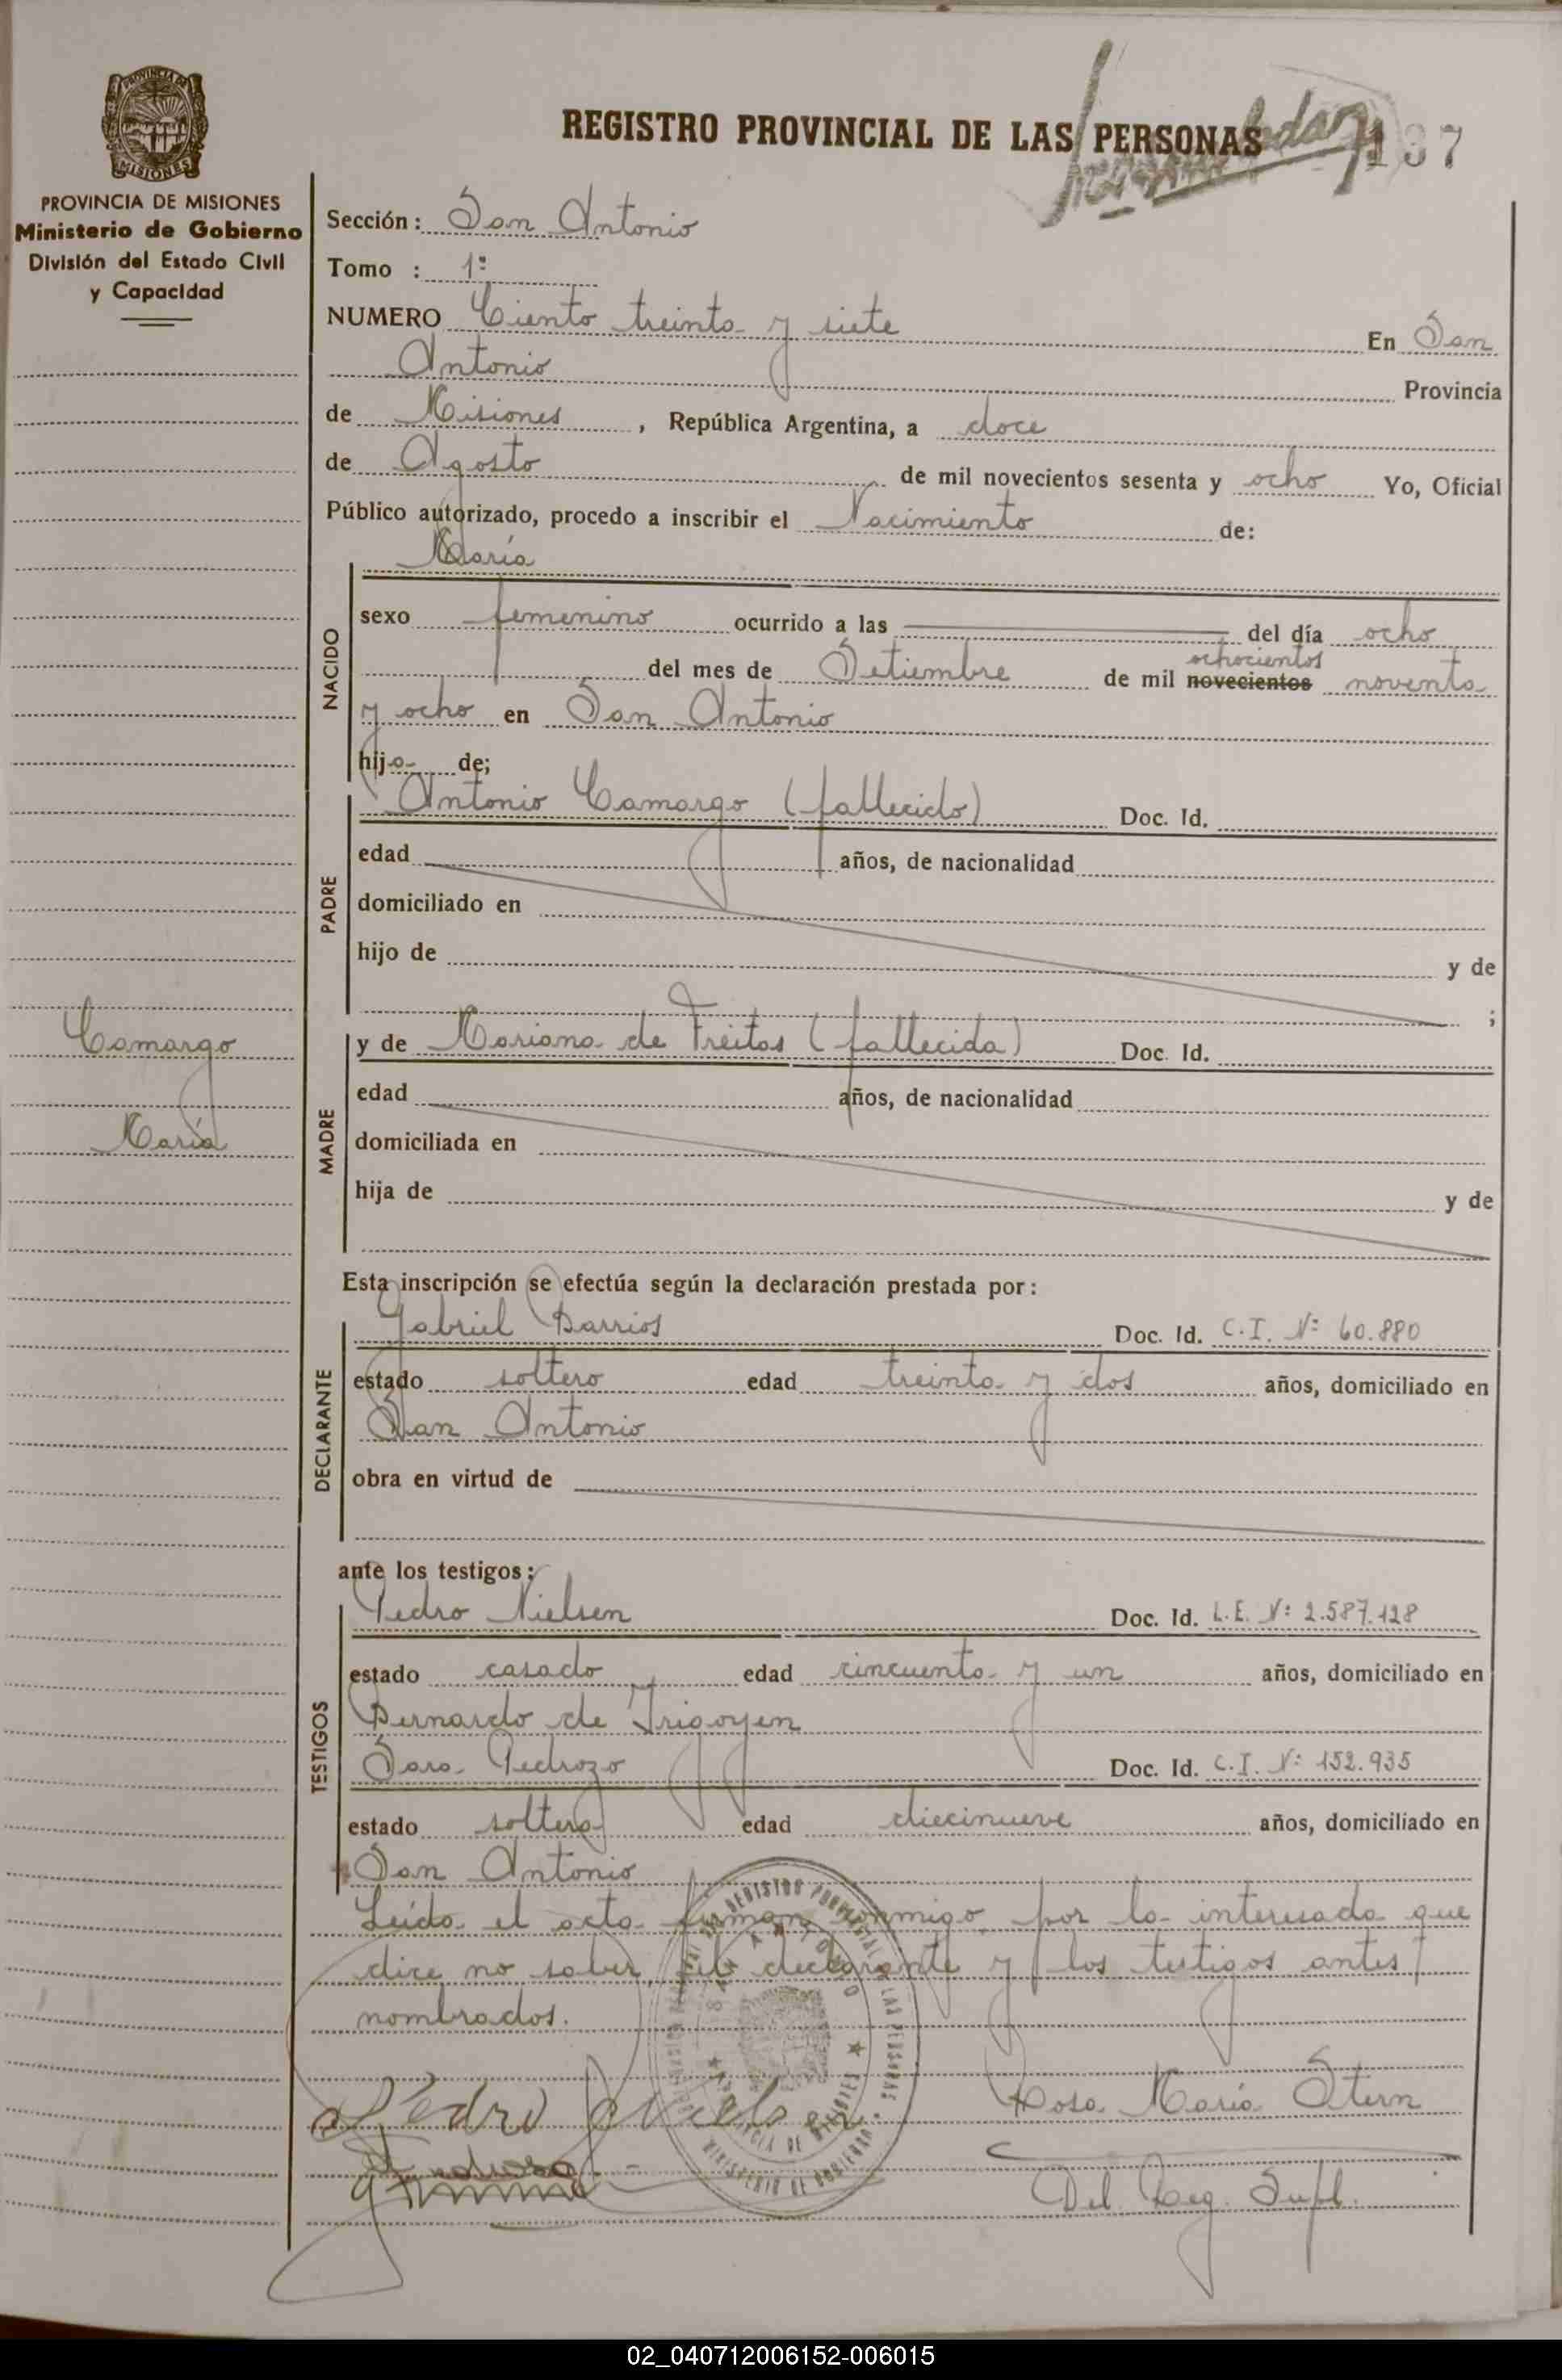 REGISTRO PROVINCIAL DE LAS PERSONAS
137
PROVINCIA DE MISIONES
Ministerio de Gobierno
División del Estado Civil
y Capacidad
Sección: San Antonio
Tomo : 1º
NUMERO Ciento treinta y siete En San
Antonio Provincia
de Misiones, República Argentina, a doce
de Agosto de mil novecientos sesenta y ocho Yo, Oficial
Público autorizado, procedo a inscribir el Nacimiento de:
María
NACIDO
sexo femenino ocurrido a las del día ocho
ochocientos
del mes de Setiembre de mil novecientos noventa
y ocho en San Antonio
hija de;
PADRE
Antonio Camargo (fallecido) Doc. Id.
edad años, de nacionalidad
domiciliado en
hijo de y de
;
MADRE
y de Mariana de Freitas (fallecida) Doc. Id.
edad años, de nacionalidad
domiciliada en
hija de y de
Camargo
María
Esta inscripción se efectúa según la declaración prestada por:
DECLARANTE
Gabriel Barrios Doc. Id. C.I. Nº 60.880
estado soltero edad treinta y dos años, domiciliado en
San Antonio
obra en virtud de
ante los testigos:
TESTIGOS
Pedro Nielsen Doc. Id. L.E. Nº 2.587.128
estado casado edad cincuenta y un años, domiciliado en
Bernardo de Irigoyen
Sara Pedrozo Doc. Id. C.I. Nº 152.935
estado soltera edad diecinueve años, domiciliado en
San Antonio
Leída el acta firman conmigo, por la interesada que
dice no saber, el declarante y los testigos antes
nombrados.
Pedro Nielsen
Rosa María Stern
Del. Reg. Supl.
02_040712006152-006015